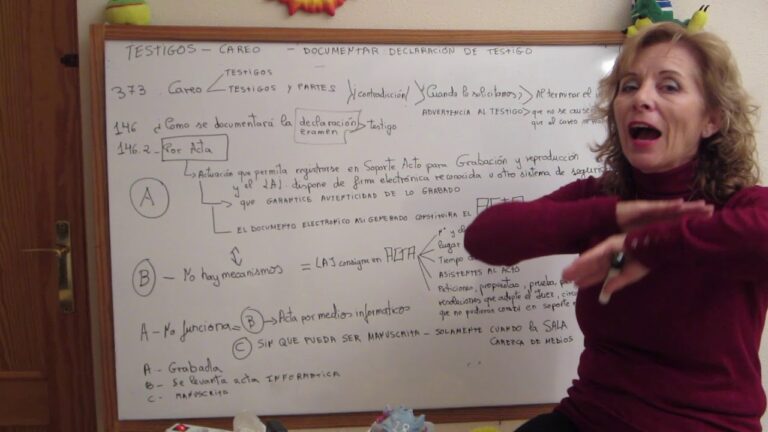 TESTIGOS - CAREO - DOCUMENTAR DECLARACIÓN DE TESTIGO
TESTIGOS
373 Careo TESTIGOS Y PARTES ¡contradicción! Cuando lo solicitamos Al terminar el
ADVERTENCIA AL TESTIGO que no se cause
que el careo se
146 ¿Como se documentará la declaración testigo
examen
146.2 - Por Acta
Actuación que permita registrarse en Soporte Acto para Grabación y reproducción
y el LAJ dispone de firma electrónica reconocida u otro sistema de segur
A
que GARANTICE AUTENTICIDAD DE LO GRABADO
EL DOCUMENTO ELECTRONICO ASI GENERADO CONSTITUIRA EL ACTA
lugar
B - No hay mecanismos = LAJ consigna en ACTA Tiempo
ASISTENTES AL ACTO
Peticiones, propuestas, prueba,
resoluciones que adopte el Juez,
que no pudieran constar en soporte
A - No funciona = B Acta por medios informaticos
C SIN QUE PUEDA SER MANUSCRITA - SOLAMENTE CUANDO la SALA
CAREZCA DE MEDIOS
A - Grabada
B - Se levanta acta INFORMATICA
C - MANUSCRITO